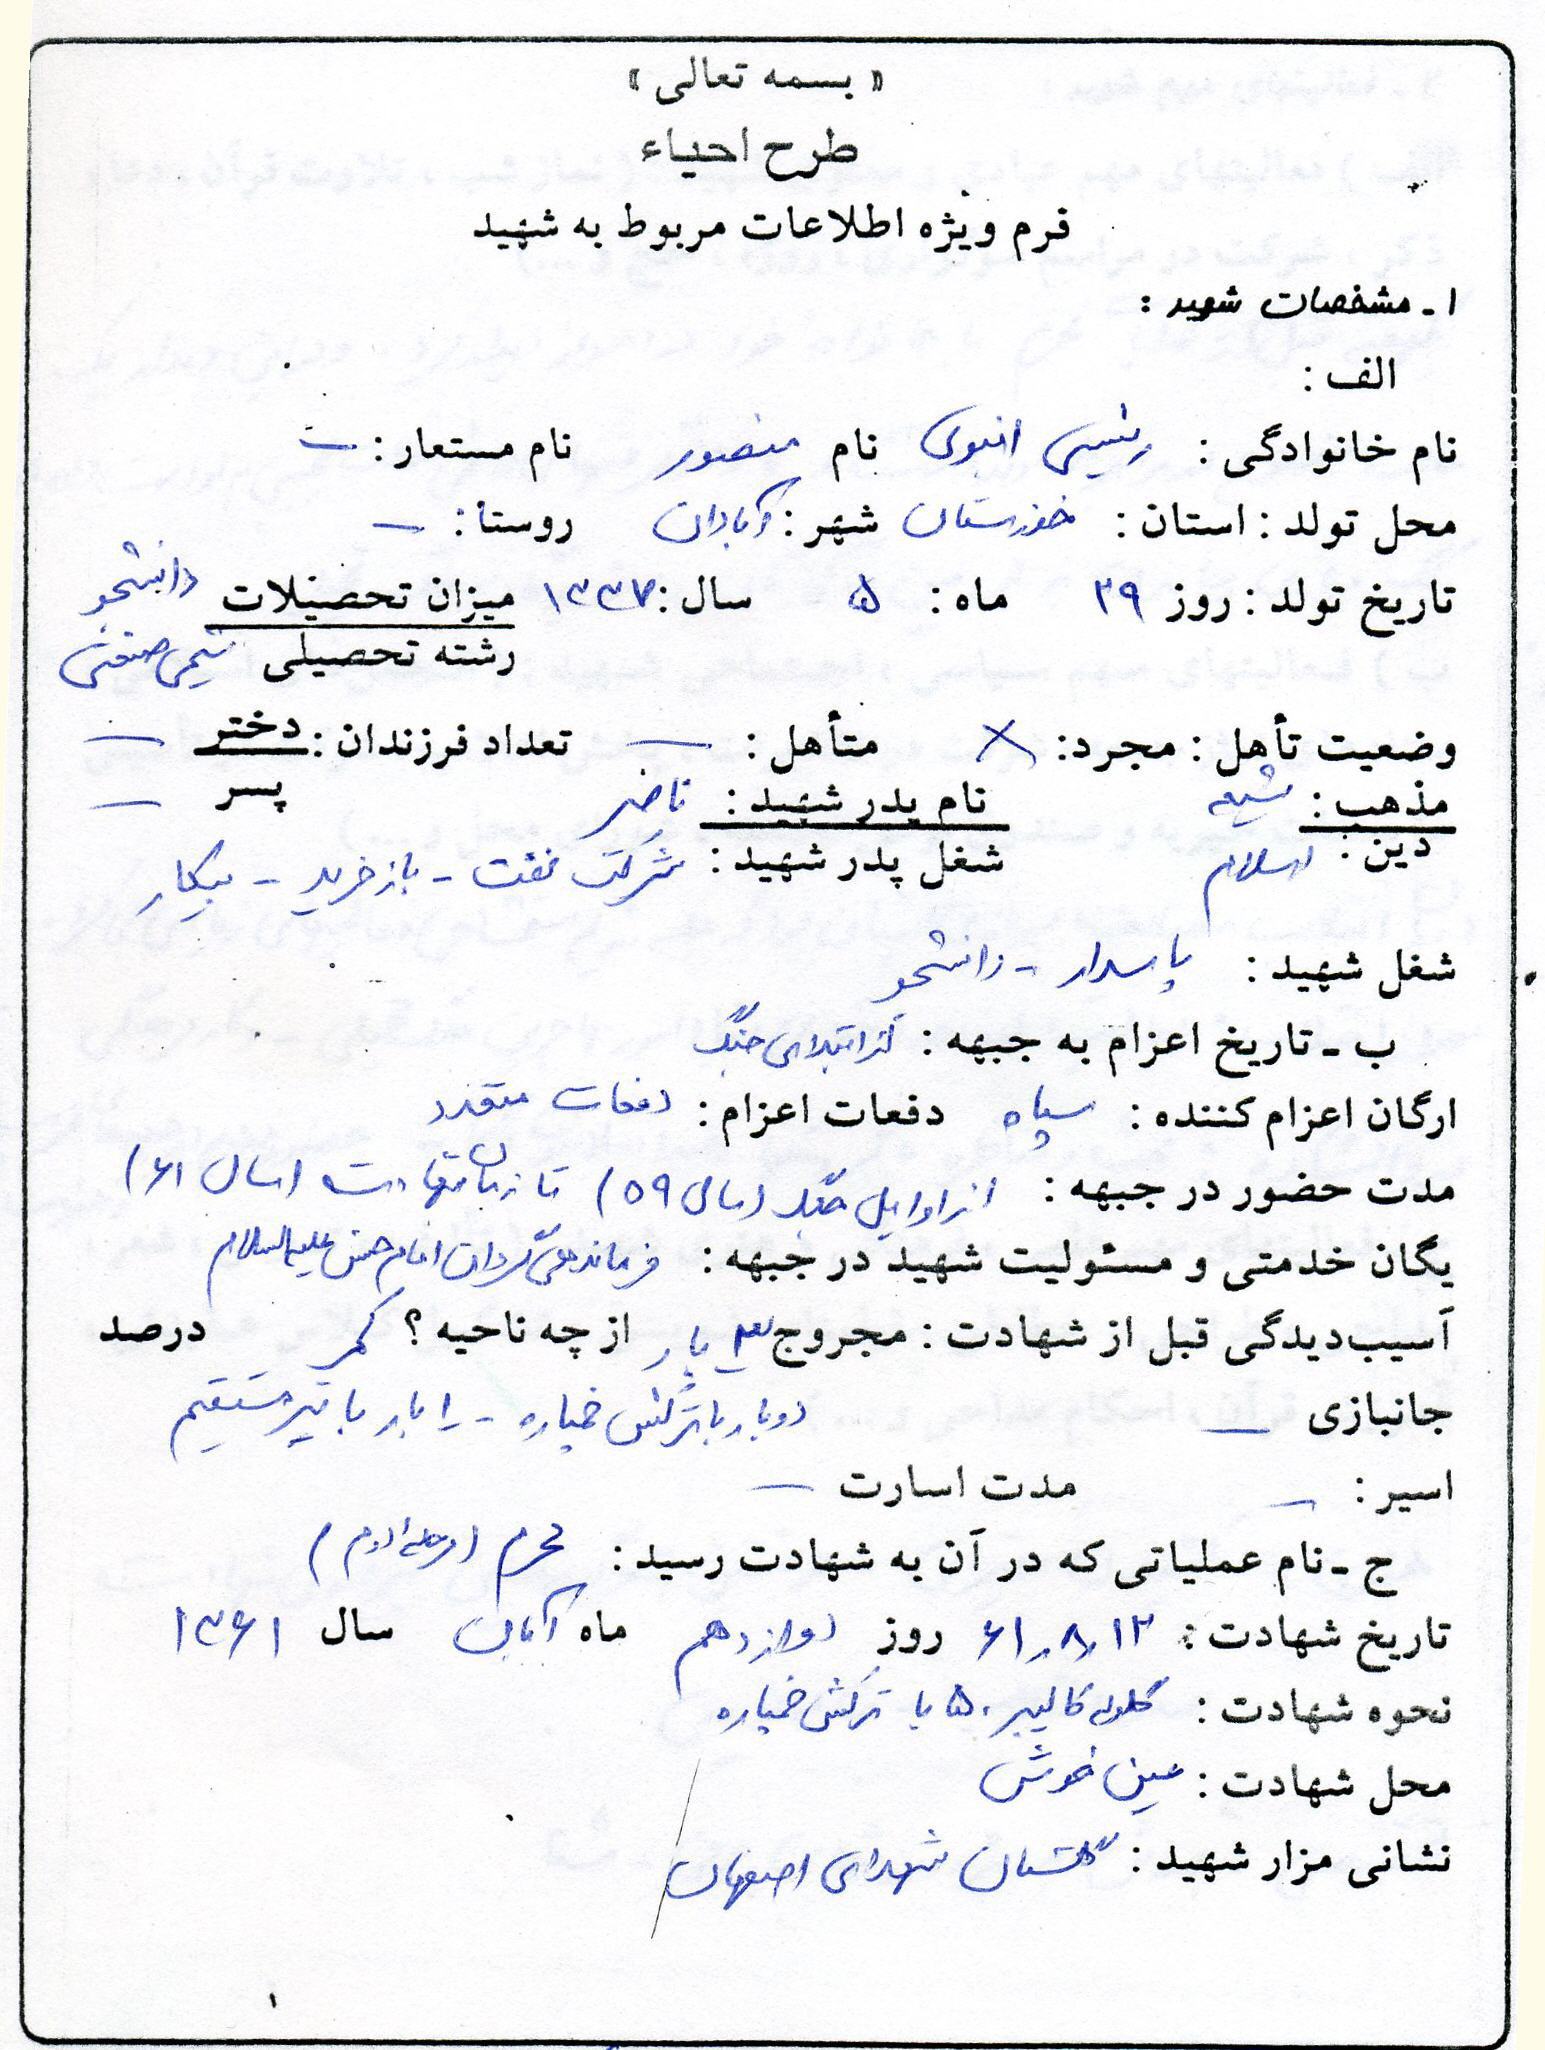 « بسمه تعالی »
طرح احیاء
فرم ویژه اطلاعات مربوط به شهید
۱ ـ مشخصات شهید :
الف :
نام خانوادگی : رئیسی انبوی نام منصور نام مستعار : —
محل تولد : استان : خوزستان شهر : آبادان روستا : —
تاریخ تولد : روز ۲۹ ماه : ۵ سال : ۱۳۳۷ میزان تحصیلات دانشجو
رشته تحصیلی شیمی صنعتی
وضعیت تأهل : مجرد : × متأهل : — تعداد فرزندان : دختر —
پسر —
مذهب : شیعه نام پدر شهید : ناصر
دین : اسلام شغل پدر شهید : شرکت نفت - بازخرید - بیکار
شغل شهید : پاسدار - دانشجو
ب ـ تاریخ اعزام به جبهه : از ابتدای جنگ
ارگان اعزام کننده : سپاه دفعات اعزام : دفعات متعدد
مدت حضور در جبهه : از اوایل جنگ (سال ۵۹) تا زمان شهادت (سال ۶۱)
یگان خدمتی و مسئولیت شهید در جبهه : فرماندهی گردان امام حسن علیه السلام
آسیب‌دیدگی قبل از شهادت : مجروح ۳ بار از چه ناحیه ؟ کمر درصد
جانبازی — دوبار با ترکش خمپاره - بار با تیر مستقیم
اسیر : — مدت اسارت —
ج ـ نام عملیاتی که در آن به شهادت رسید : محرم (مرحله دوم)
تاریخ شهادت : ۶۱٫۸٫۱۲ روز دوازدهم ماه آبان سال ۱۳۶۱
نحوه شهادت : گلوله کالیبر ۵۰ یا ترکش خمپاره
محل شهادت : عین خوش
نشانی مزار شهید : گلستان شهدای اصفهان
۱